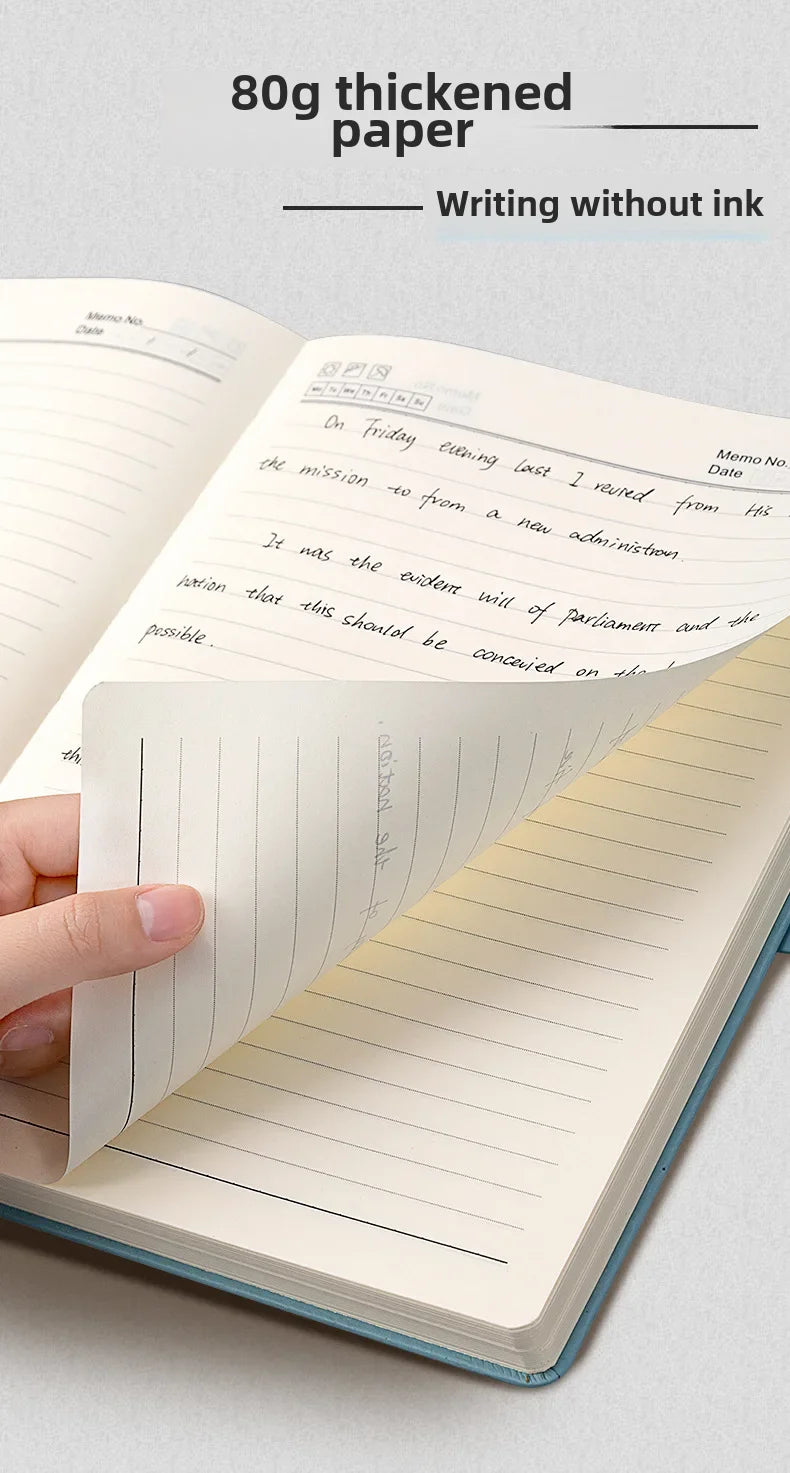 80g thickened
paper
Writing without ink
Memo No.
Date
Mo Tu We Th Fr Sa Su
Memo No.
Date
On Friday evening last I revied from His
the mission to from a new administron.
It was the evident will of parliament and the
nation that this should be conceived on the
possible.
the nation.